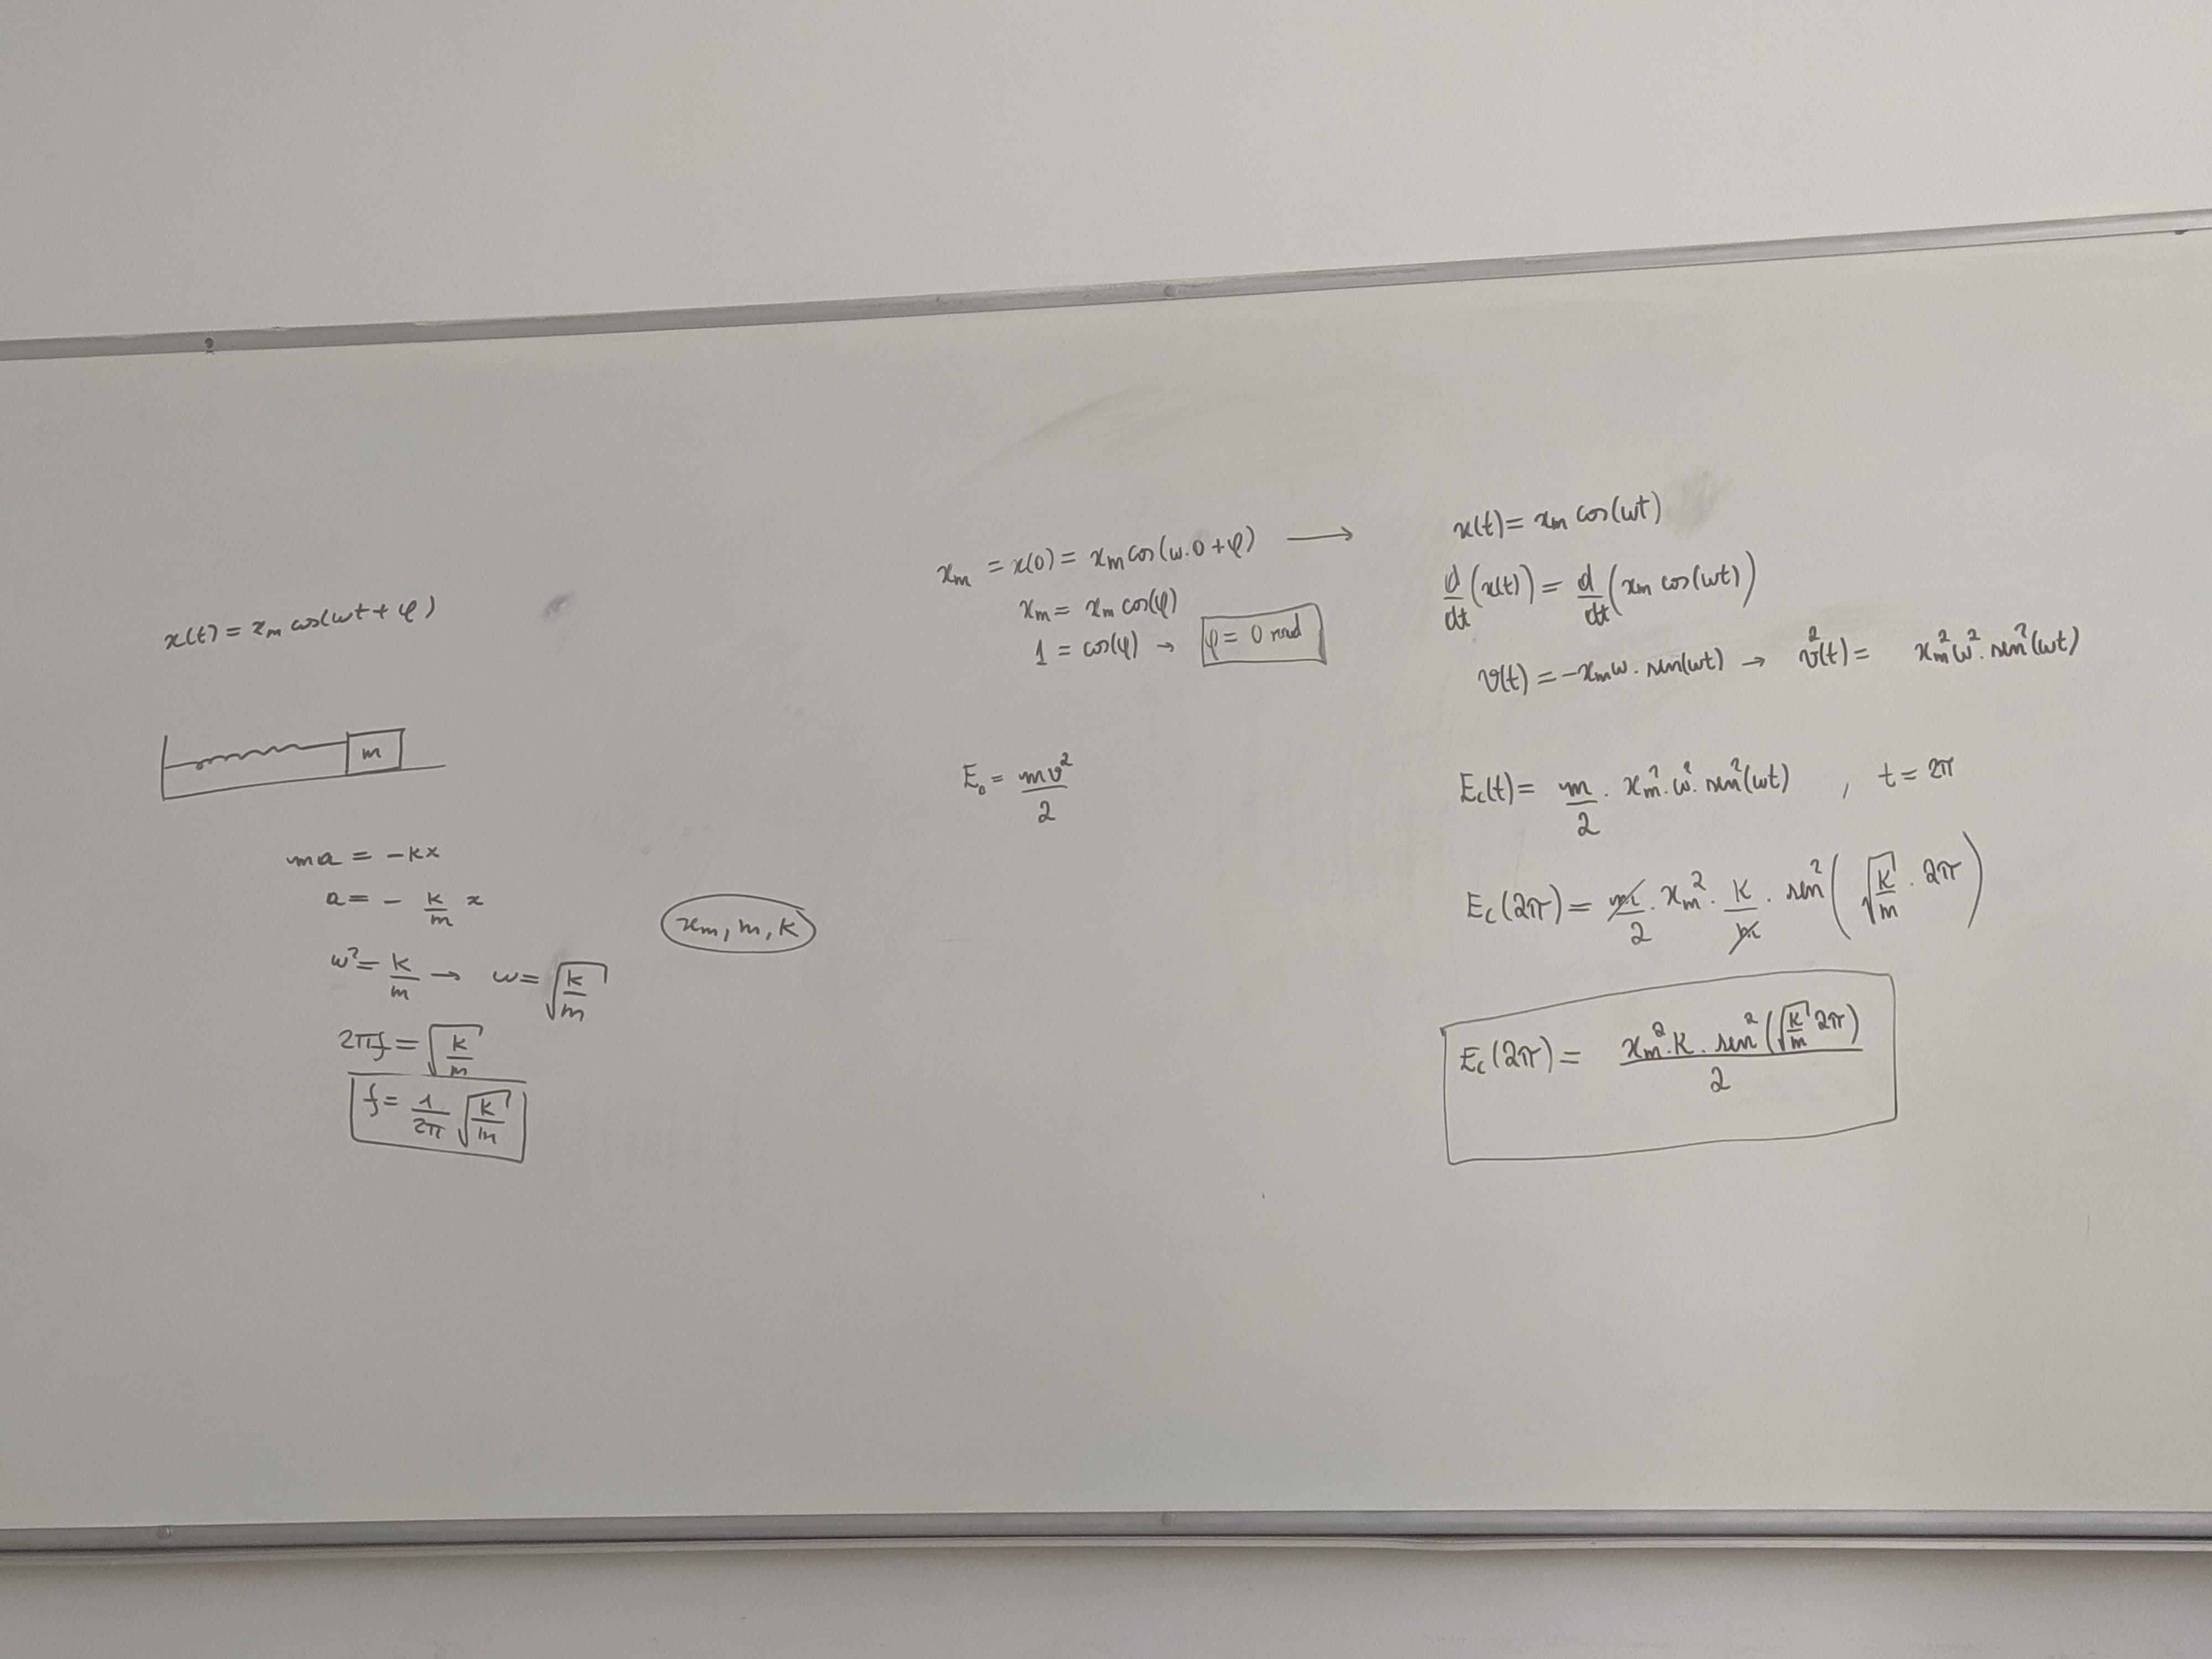 x(t) = xm cos(ωt + φ)
m
ma = -kx
a = - k/m x
ω² = k/m → ω = √(k/m)
2πf = √(k/m)
f = 1/2π √(k/m)
xm, m, k
xm = x(0) = xm cos(ω.0 + φ) →
xm = xm cos(φ)
1 = cos(φ) → φ = 0 rad
E₀ = mv²/2
x(t) = xm cos(ωt)
d/dt (x(t)) = d/dt (xm cos(ωt))
v(t) = -xmω . sen(ωt) → v²(t) = xm²ω² . sen²(ωt)
Ec(t) = m/2 . xm² . ω² . sen²(ωt) , t = 2π
Ec(2π) = m/2 . xm² . k/m . sen²(√(k/m) . 2π)
Ec(2π) = xm² . k . sen²(√(k/m) 2π)/2